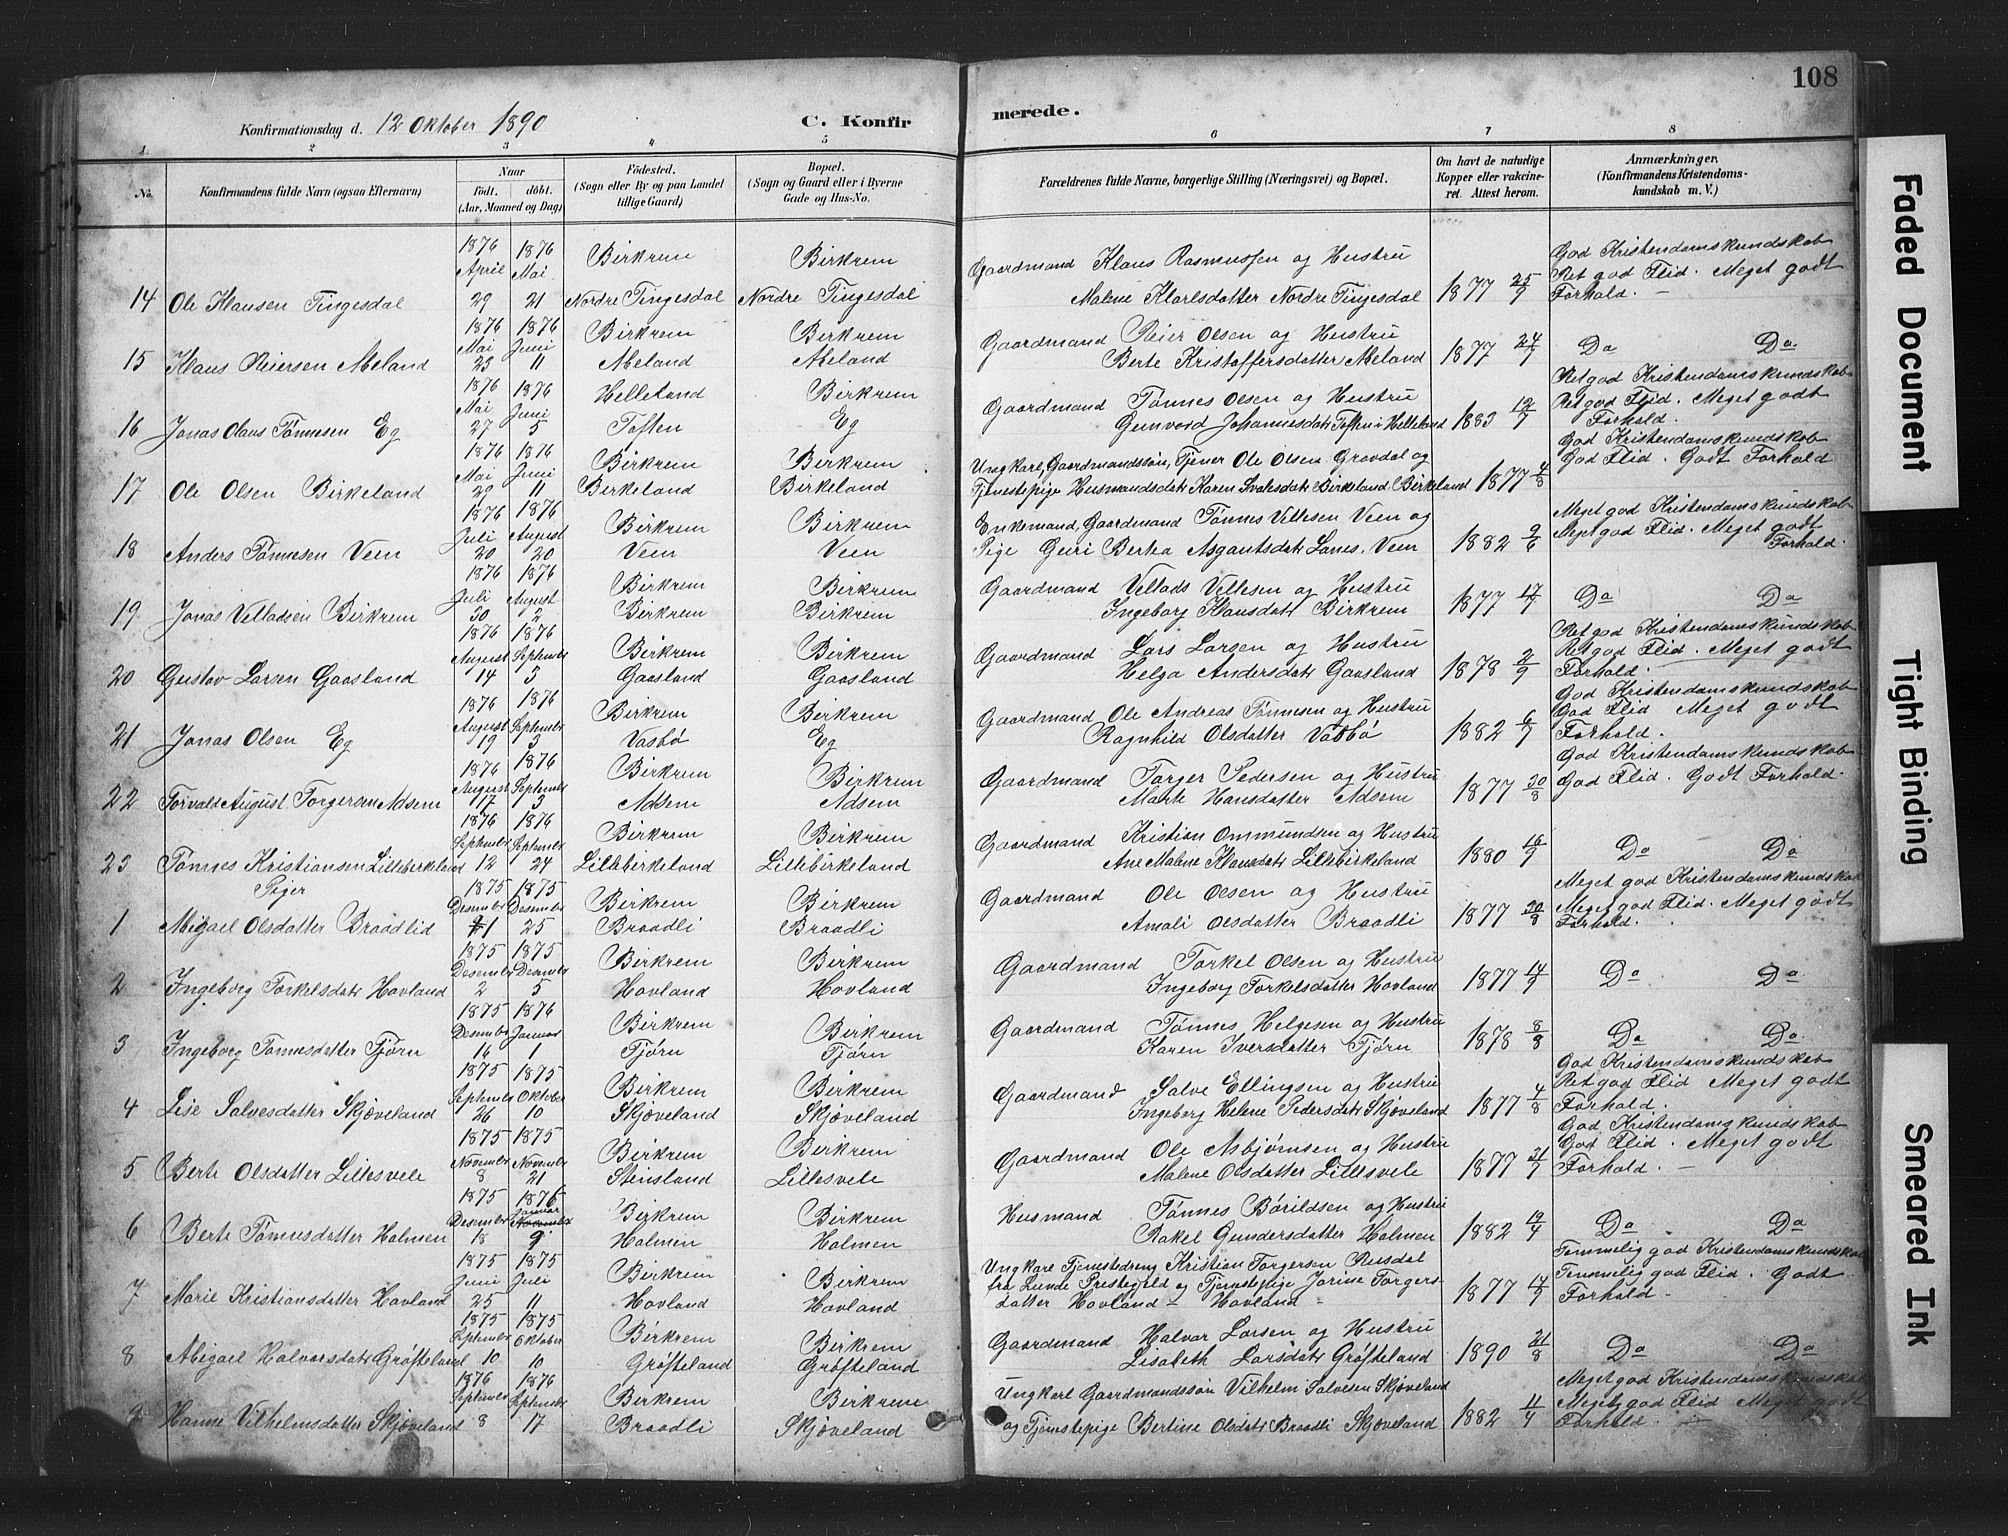 108
Konfirmationsdag d. 12 Oktober 1890
C. Konfirmerede.
1. 2 3 4 5 6 7 8
No. Konfirmandens fulde Navn (ogsaa Efternavn) Naar født. døbt. (Aar, Maaned og Dag) Fødested. (Sogn eller By og paa Landet tillige Gaard) Bopæl. (Sogn og Gaard eller i Byerne Gade og Hus-No. Forældrenes fulde Navne, borgerlige Stilling (Næringsvei) og Bopæl. Om havt de naturlige Kopper eller vakcineret. Attest herom. Anmærkninger. (Konfirmandens Kristendomskundskab m. V.)
14 Ole Klausen Tingesdal 1876 April 29 1876 Mai 21 Birkrem Nordre Tingesdal Birkrem Nordre Tingesdal Gaardmand Klaus Rasmussen og Hustru Malene Karlsdatter Nordre Tingesdal 1877 25/9 God Kristendomskundskab Ret god Flid. Meget godt Forhold. —
15 Klaus Reiersen Mæland 1876 Mai 23 1876 Juni 11 Birkrem Mæland Birkrem Mæland Gaardmand Reier Olsen og Hustru Berte Kristoffersdatter Mæland 1877 24/7 Do Do.
16 Jonas Olaus Tønnesen Eg 1876 Mai 27 1876 Juni 5 Helleland Toften Birkrem Eg Gaardmand Tønnes Olsen og Hustru Gunvord Johannesdatr Toften i Helleland 1883 12/7 Ret god Kristendomskundskab Ret god Flid. Meget godt Forhold.
17 Ole Olsen Birkeland 1876 Mai 29 1876 Juni 11 Birkrem Birkeland Birkrem Birkeland Ungkarl, Gaardmandssøn, Tjener Ole Olsen Gravdal og Tjenestepige Husmandsdatr Karen Svalesdatr Birkeland. Birkeland 1877 4/8 God Kristendomskundskab God Flid. Godt Forhold
18 Anders Tønnesen Veen 1876 Juli 20 1876 August 20 Birkrem Veen Birkrem Veen Enkemand, Gaardmand Tønnes Villesen Veen og Pige Guri Berta Asgautsdatr Lones. Veen 1882 9/6 Meget god Kristendomskundskab Meget god Flid. Meget godt Forhold.
19 Jonas Velladsen Birkrem 1876 Juli 30 1876 August 2 Birkrem Birkrem Birkrem Birkrem Gaardmand Vellads Villesen og Hustru Ingeborg Klausdatr Birkrem 1877 17/7 Do Do
20 Gustav Larsen Gaasland 1876 August 14 1876 September 3 Birkrem Gaasland Birkrem Gaasland Gaardmand Lars Larsen og Hustru Helga Andersdatr Gaasland 1878 2/9 Ret god Kristendomskundskab Ret god Flid. Meget godt Forhold.
21 Jonas Olsen Eg 1876 August 19 1876 September 3 Birkrem Vasbø Birkrem Eg Gaardmand Ole Andreas Tønnesen og Hustru Ragnhild Olsdatter Vasbø 1882 6/7 God Kristendomskundskab God Flid Meget godt Forhold.
22 Torvald August Torgersen Adsem 1876 August 17 1876 September 3 Birkrem Adsem Birkrem Adsem Gaardmand Torger Pedersen og Hustru Marte Hansdatter Adsem 1877 30/8 God Kristendomskundskab God Flid. Godt Forhold.
23 Tønnes Kristiansen Lillebirkeland 1876 September 12 1876 September 24 Birkrem Lillebirkeland Birkrem Lillebirkeland Gaardmand Kristian Ommundsen og Hustru Ane Malene Klausdatr Lillebirkeland 1880 16/9 Do Do
Piger
1 Abigael Olsdatter Braadlid 1875 Desember 1 1875 Desember 25 Birkrem Braadli Birkrem Braadli Gaardmand Ole Olsen og Hustru Amali Olsdatter Braadli 1877 30/8 Meget god Kristendomskundskab Meget god Flid. Meget godt Forhold.
2 Ingeborg Torkelsdatr Hovland 1875 Desember 2 1875 Desember 5 Birkrem Hovland Birkrem Hovland Gaardmand Torkel Olsen og Hustru Ingeborg Torkelsdatter Hovland 1877 14/9 Do Do
3 Ingeborg Tønnesdatter Tjørn 1875 Desember 16 1876 Januar 1 Birkrem Tjørn Birkrem Tjørn Gaardmand Tønnes Helgesen og Hustru Karen Iversdatter Tjørn 1878 8/8 Do Do.
4 Lise Salvesdatter Skjæveland 1875 September 26 1875 Oktober 10 Birkrem Skjæveland Birkrem Skjæveland Gaardmand Salve Ellingsen og Hustru Ingeborg Helene Pedersdatr Skjæveland 1877 4/8 God Kristendomskundskab Ret god Flid Meget godt Forhold.
5 Berte Olsdatter Lillesvele 1875 November 8 1875 November 21 Birkrem Stensland Birkrem Lillesvele Gaardmand Ole Asbjørnsen og Hustru Malene Olsdatter Lillesvele 1877 21/7 God Kristendomskundskab God Flid. Meget godt Forhold. —
6 Berte Tønnesdatter Holmen 1875 Desember 18 1876 Januar 9 Birkrem Holmen Birkrem Holmen Husmand Tønnes Børildsen og Hustru Rakel Gundersdatter Holmen 1882 19/4 Do Do
7 Marie Kristiansdatter Hovland 1875 Juni 25 1875 Juli 11 Birkrem Hovland Birkrem Hovland Ungkarl Tjenestedreng Kristian Torgersen Reusdal fra Lunde Prestegjeld og Tjenestepige Jorine Torgersdatter Hovland – Hovland – 1877 14/9 Temmelig god Kristendomskundskab Temmelig god Flid. Godt Forhold.
8 Abigael Halvorsdatr Grøfteland 1875 September 10 1875 Oktober 10 Birkrem Grøfteland Birkrem Grøfteland Gaardmand Halvor Larsen og Hustru Lisabeth Larsdatr Grøfteland 1890 21/8 Do Do
9 Hanne Vilhelmsdatter Skjæveland 1876 September 8 1876 September 17 Birkrem Braadli Birkrem Skjæveland Ungkarl Gaardmandssøn Vilhelm Salvesen Skjæveland og Tjenestepige Bertine Olsdatr Braadli Skjæveland 1882 11/4 Meget god Kristendomskundskab Meget god Flid Meget godt Forhold. —
Faded Document
Tight Binding
Smeared Ink